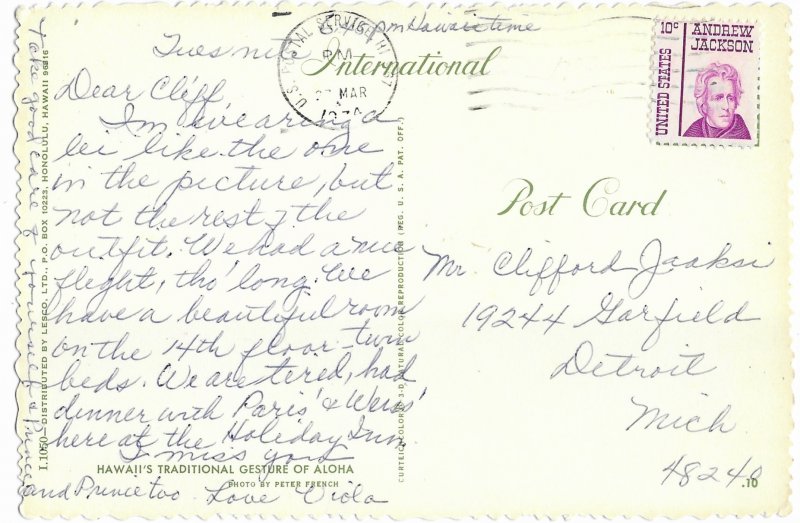 Tues nite 6:45 pm Hawaii time
Dear Cliff,
I'm wearing a
lei like the one
in the picture, but
not the rest of the
outfit. We had a nice
flight, tho' long. We
have a beautiful room
on the 14th floor - twin
beds. We are tired, had
dinner with Paris' &
here at the Holiday Inn.
I miss you
Love Viola
Take good care of yourself &
and Prince too.
International
Post Card
U.S. POSTAL SERVICE HI
PM
MAR
10c ANDREW
JACKSON
UNITED STATES
Mr. Clifford Jaaksi
19244 Garfield
Detroit
Mich
48240
HAWAII'S TRADITIONAL GESTURE OF ALOHA
PHOTO BY PETER FRENCH
.10
I.1050—DISTRIBUTED BY LESCO, LTD., P.O. BOX 10223, HONOLULU, HAWAII 96816
CURTEICHCOLOR® 3-D NATURAL COLOR REPRODUCTION (REG. U.S.A. PAT. OFF.)